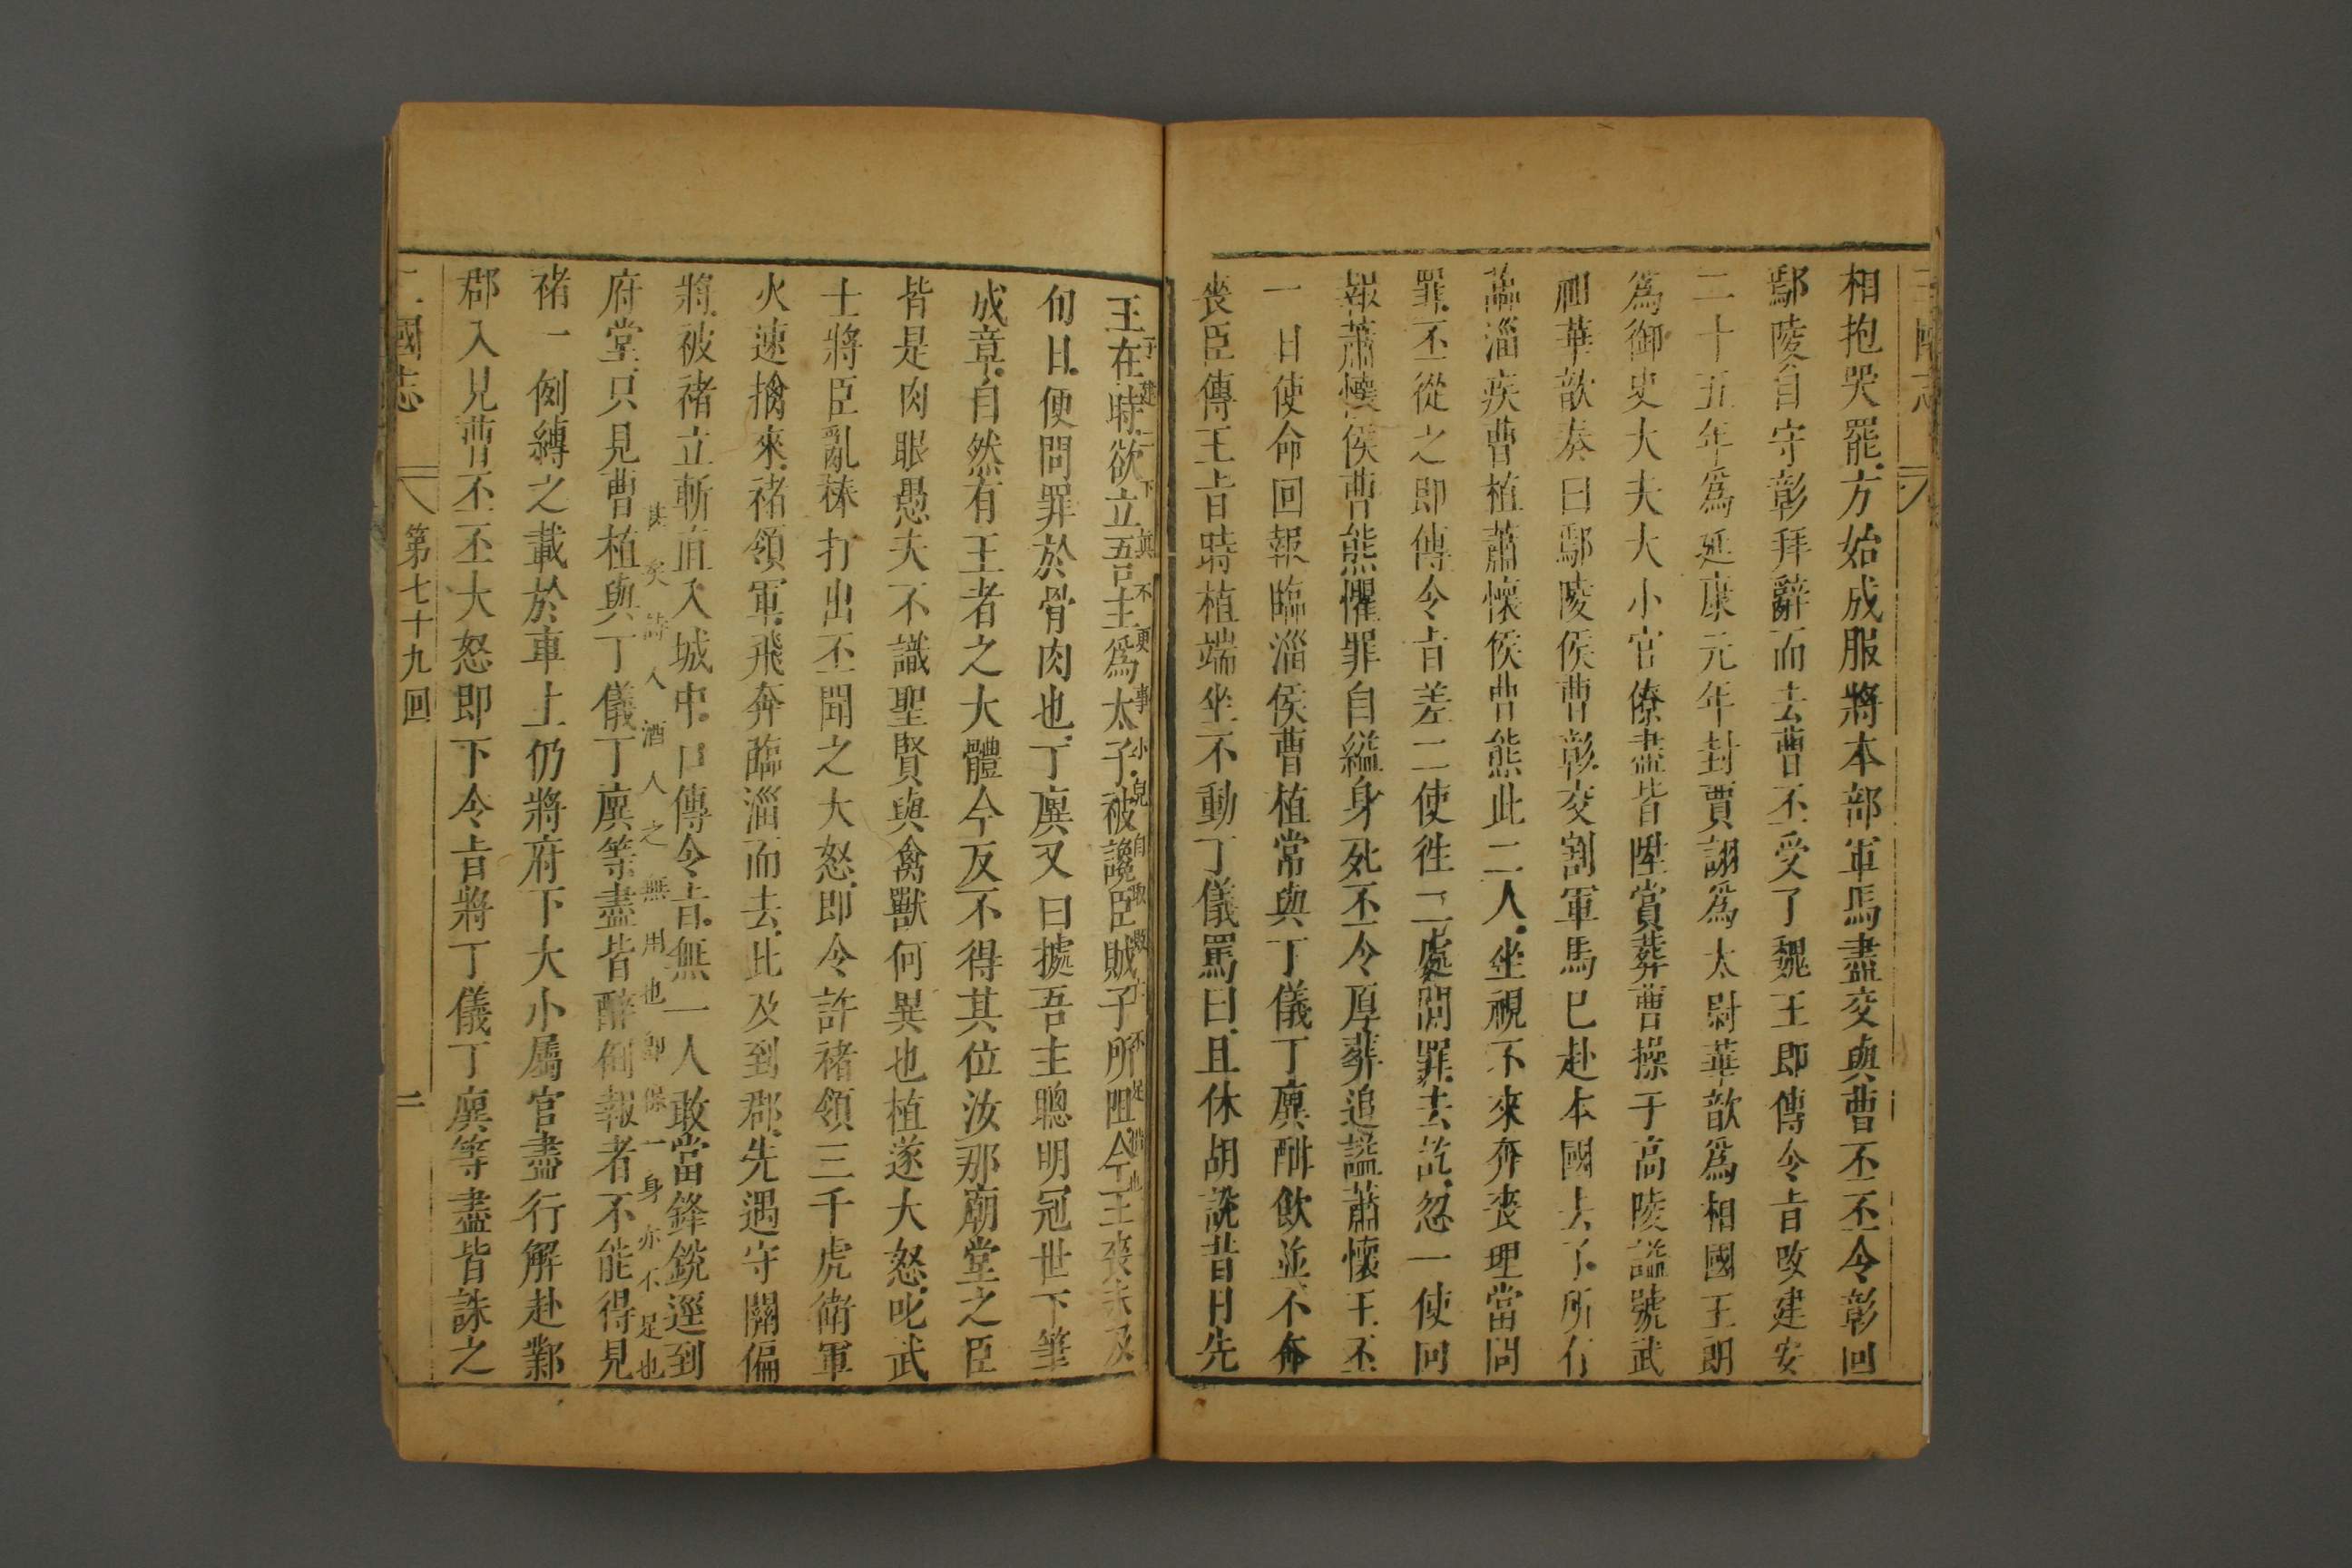 三國志
相抱哭罷方始成服將本部軍馬盡交與曹丕丕令彰回
鄢陵自守彰拜辭而去曹丕受了魏王即傳令旨改建安
二十五年爲延康元年封賈詡爲太尉華歆爲相國王朗
爲御史大夫大小官僚盡皆陞賞葬曹操于高陵謚號武
祖華歆奏曰鄢陵侯曹彰交割軍馬已赴本國去了所有
臨淄疾曹植蕭懷侯曹熊此二人坐視不來奔喪理當問
罪丕從之即傳令旨差二使徃二處問罪去訖忽一使回
報蕭懷侯曹熊懼罪自縊身死丕令厚葬追謚蕭懷王丕
一日使命回報臨淄侯曹植常與丁儀丁廙酣飲並不奔
喪臣傳王旨時植端坐不動丁儀罵曰且休胡說昔日先
王在時欲立吾主爲太子被讒臣賊子所阻今王喪未及
子建丁下與不更事小兒自取敗亡不足惜也
旬日便問罪於骨肉也丁廙又曰據吾主聰明冠世下筆
成章自然有王者之大體今反不得其位汝那廟堂之臣
皆是肉眼愚夫不識聖賢與禽獸何異也植遂大怒叱武
士將臣亂棒打出丕聞之大怒即令許褚領三千虎衛軍
火速擒來褚領軍飛奔臨淄而去此及到郡先遇守關偏
將被褚立斬直入城中口傳令旨無一人敢當鋒銳逕到
矣詩人酒人之無用也卽保一身亦不足也
府堂只見曹植與丁儀丁廙等盡皆醉倒報者不能得見
褚一例縛之載於車上仍將府下大小屬官盡行解赴鄴
郡入見曹丕丕大怒即下令旨將丁儀丁廙等盡皆誅之
三國志 第七十九回 二